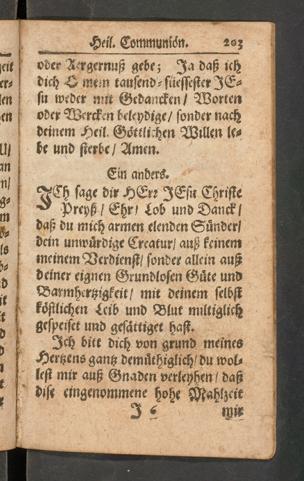 Heil. Communion. 203
oder Aergernuß gebe; Ja daß ich
dich O mein tausend-süessester JE-
su weder mit Gedancken/ Worten
oder Wercken beleydige/ sonder nach
deinem Heil. Göttlichen Willen le-
be und sterbe/ Amen.
Ein anders.
ICh sage dir HErr JEsu Christe
Preyß/ Ehr/ Lob und Danck/
daß du mich armen elenden Sünder/
dein unwürdige Creatur/ auß keinem
meinem Verdienst/ sonder allein auß
deiner eignen Grundlosen Güte und
Barmhertzigkeit/ mit deinem selbst
köstlichen Leib und Blut miltiglich
gespeiset und gesättiget hast.
Ich bitt dich von grund meines
Hertzens gantz demüthiglich/ du wol-
lest mir auß Gnaden verleyhen/ daß
dise eingenommene hohe Mahlzeit
J 6 mir